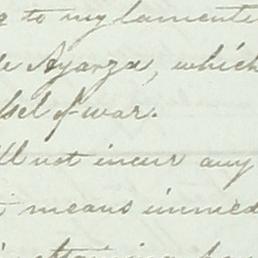 to my lamente
Ayarza, which
sel of war.
ll not incur any
means immed